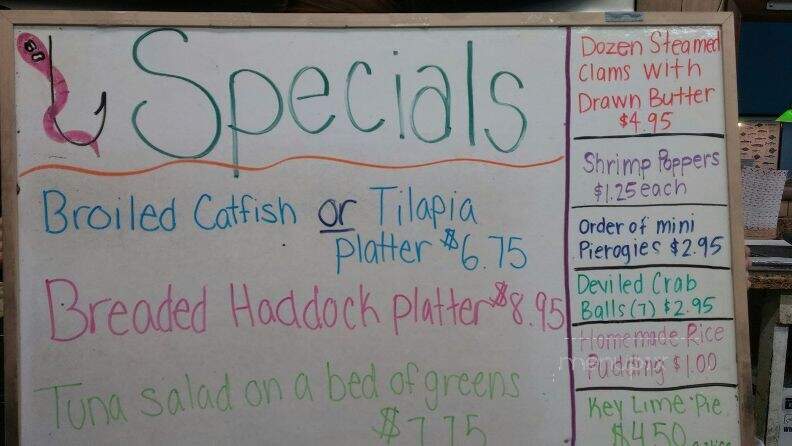 Specials
Broiled Catfish or Tilapia
Platter $6.75
Breaded Haddock Platter $8.95
Tuna salad on a bed of greens
$7.75
Dozen Steamed
Clams with
Drawn Butter
$4.95
Shrimp Poppers
$1.25 each
Order of mini
Pierogies $2.95
Deviled Crab
Balls (7) $2.95
Homemade Rice
Pudding $1.00
Key Lime Pie
$4.50